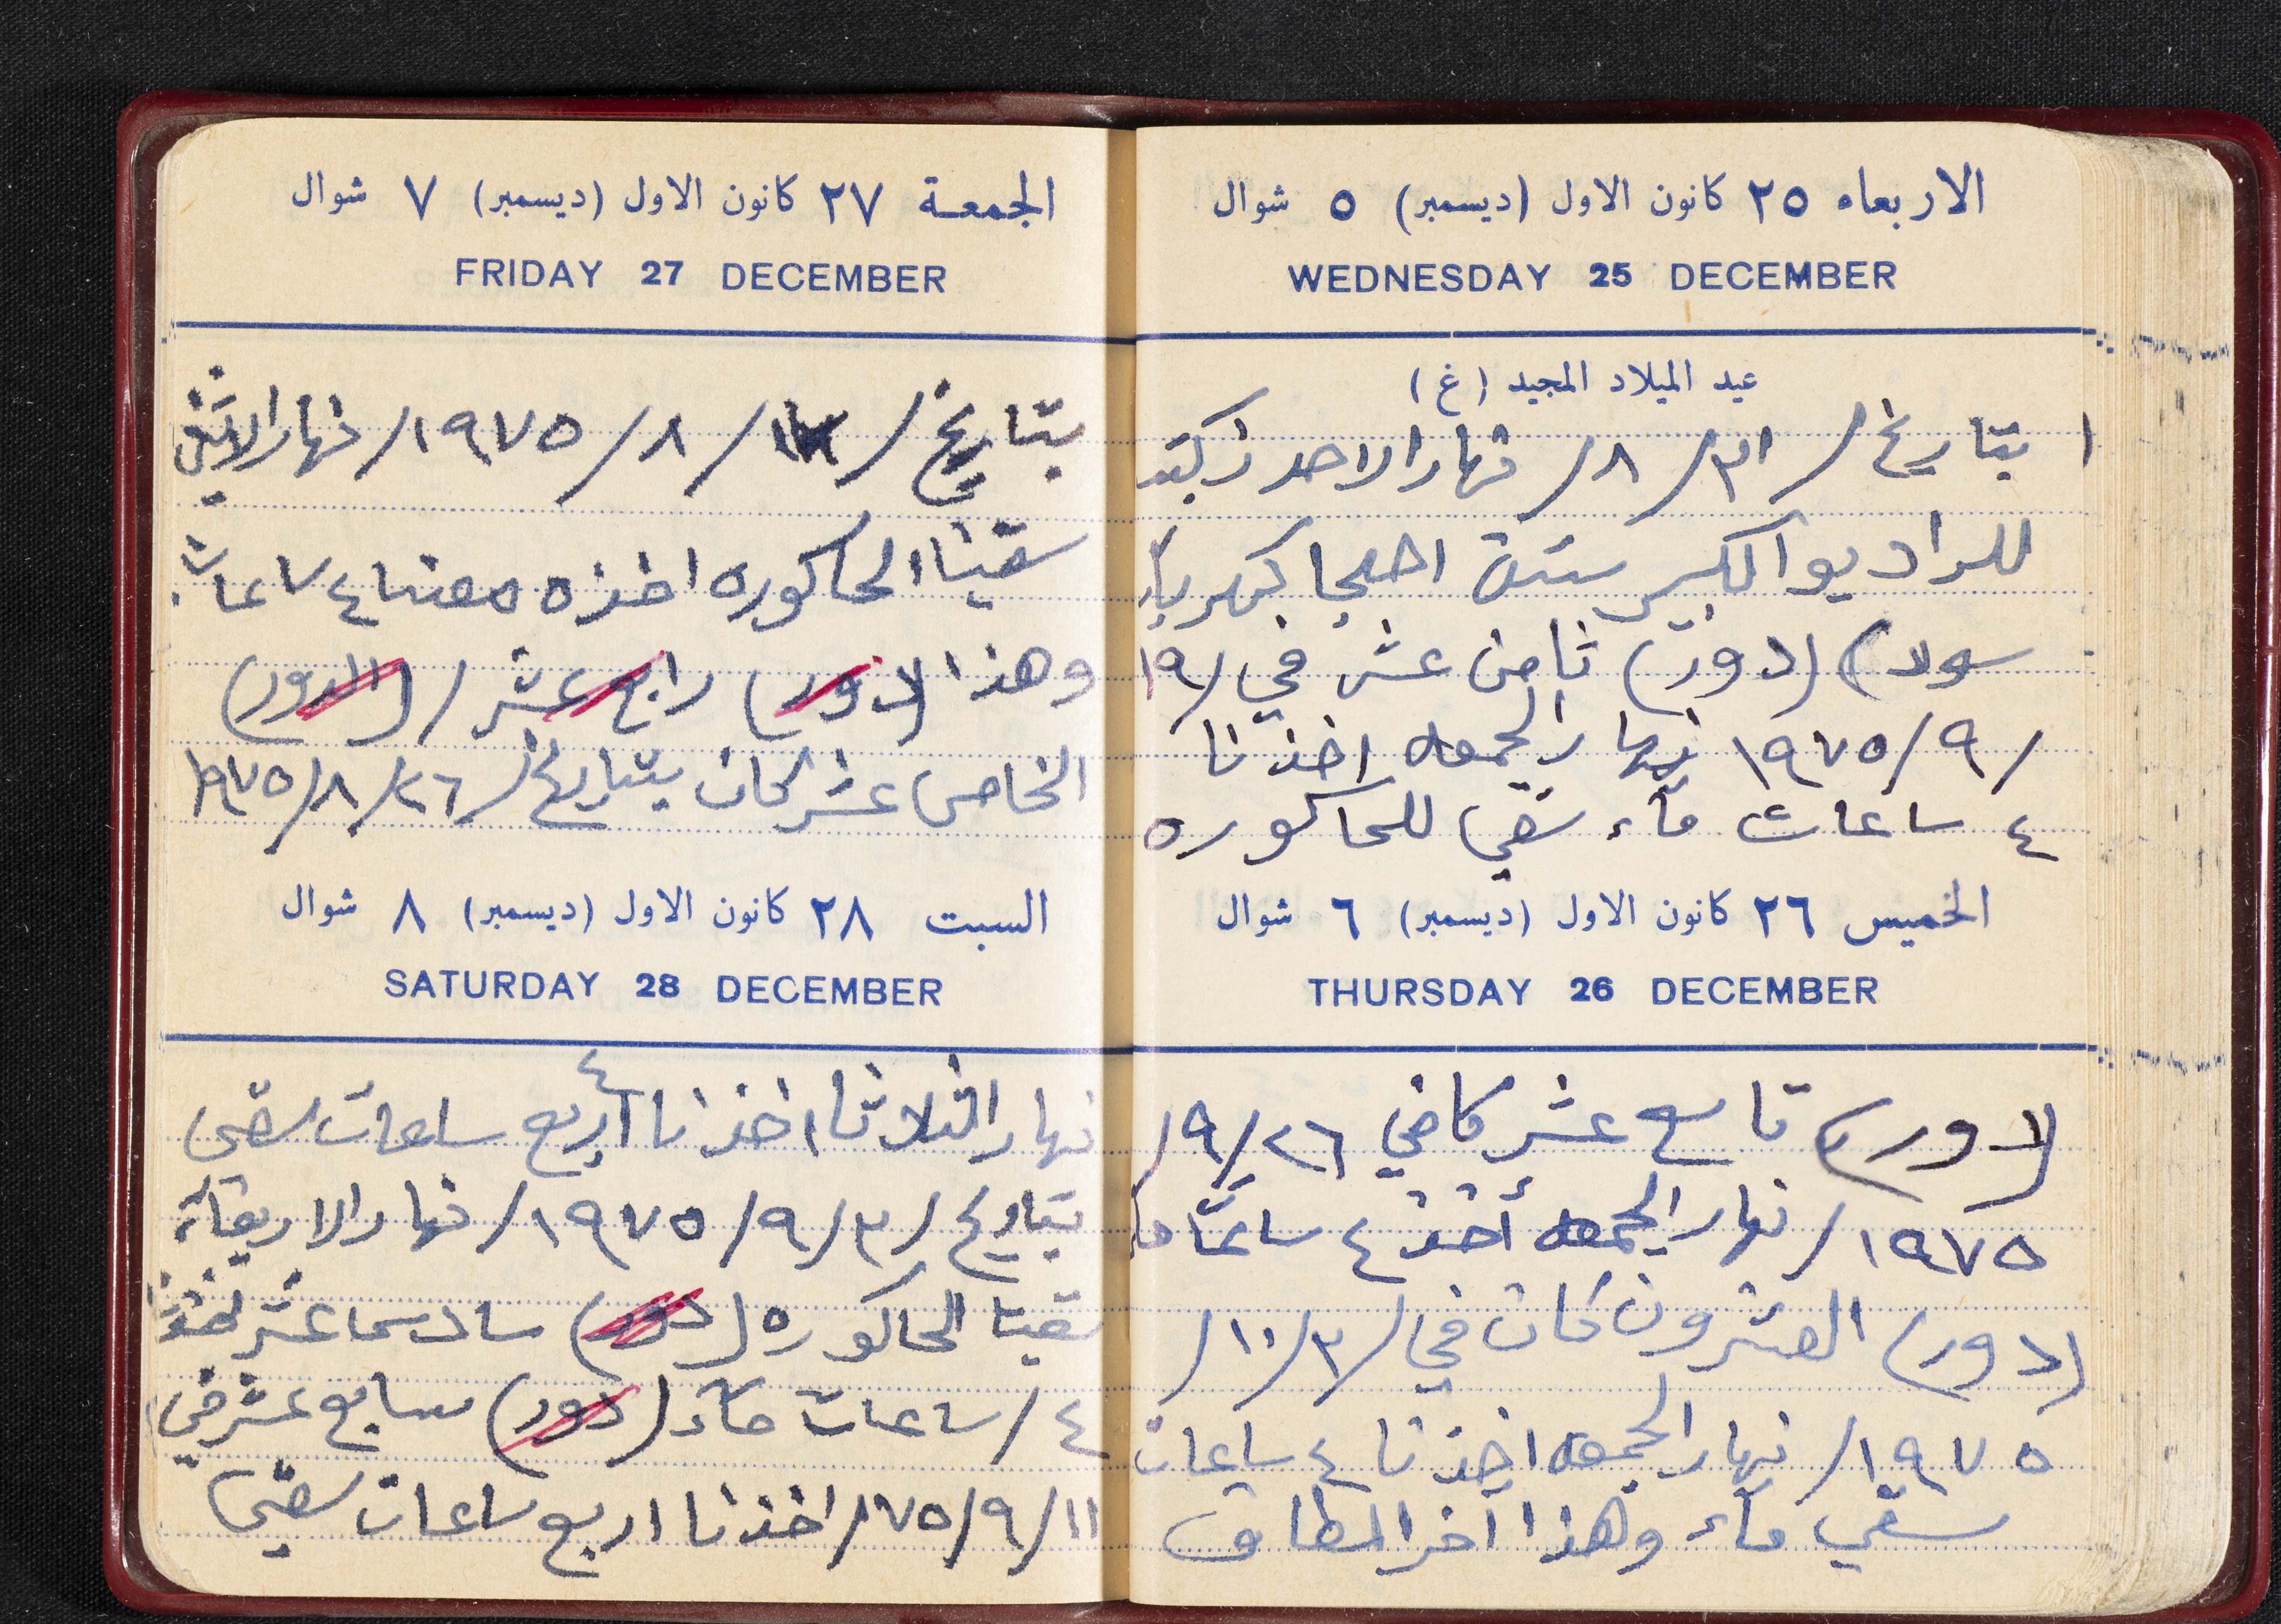 الاربعاء ٢٥ كانون الاول (ديسمبر) ٥ شوال
WEDNESDAY 25 DECEMBER
عيد الميلاد المجيد (غ)
بتاريخ /٣١/ ٨/ نهار الاحد ركبت
للراديو الكبير ستت احلجا كهربا
سودا) (دور) ثامن عشر في /١٩
/٩/ ١٩٧٥ نهار الجمعه اخذنا
٤ ساعات مآء سقي للحاكوره
الخميس ٢٦ كانون الاول (ديسمبر) ٦ شوال
THURSDAY 26 DECEMBER
(دور) تاسع عشر كا في ٢٦/ ٩/
١٩٧٥/ نهار الجمعه أخذ ٤ ساعات
(دور) العشرون كان في /٣/ ١٠/
١٩٧٥/ نهار الجمعه اخذنا ٤ ساعات
سقي مآء وهذا آخر المطاف
الجمعة ٢٧ كانون الاول (ديسمبر) ٧ شوال
FRIDAY 27 DECEMBER
بتاريخ / /٨/ ١٩٧٥/ نهار الاثنين
سقينا الحاكوره اخذه معنا ٤ ساعات
وهذا (دور) رابع عشر / (الدور)
الخامس عشر كان بتاريخ /٢٦/ ٨/ ١٩٧٥
السبت ٢٨ كانون الاول (ديسمبر) ٨ شوال
SATURDAY 28 DECEMBER
نهار الثلاثا اخذنا ٤ اربع ساعات سقي
بتاريخ /٣/ ٩/ ١٩٧٥/ نهار الاربعاء
سقينا الحاكوره (دور) سادسا عشر اخذنا
٤/ ساعات مآء (دور) سابع عشر في
١١/ ٩/ ٧٥/ اخذنا اربع ساعات سقي